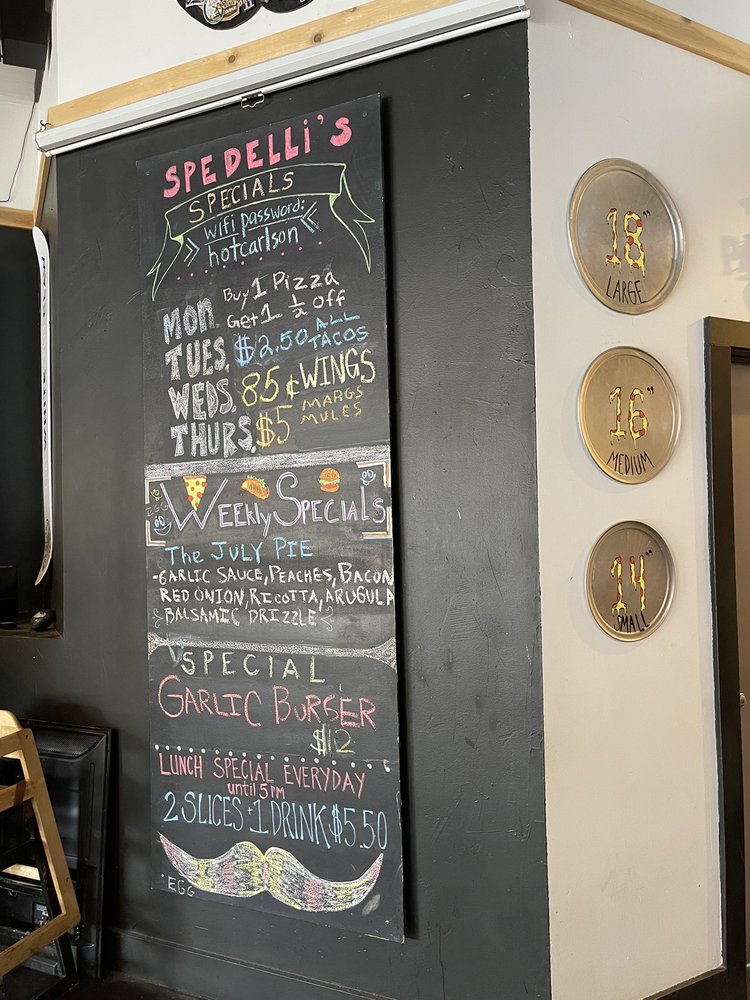 SPEDELLi'S
SPECIALS
wifi password:
hotcarlson
MON. Buy 1 Pizza Get 1 ½ Off
TUES. $2.50 ALL TACOS
WEDS. 85¢ WINGS
THURS. $5 MARGS MULES
EGG
WEEkly SPECiAlS
The JULY PIE
-GARLIC SAUCE, PEACHES, BACON
RED ONION, RICOTTA, ARUGULA
BALSAMIC DRIZZLE
SPECIAL
GARLIC BURGER
$12
LUNCH SPECIAL EVERYDAY
until 5pm
2 SLICES + 1 DRINK $5.50
EGG
18"
LARGE
16"
MEDIUM
14"
SMALL